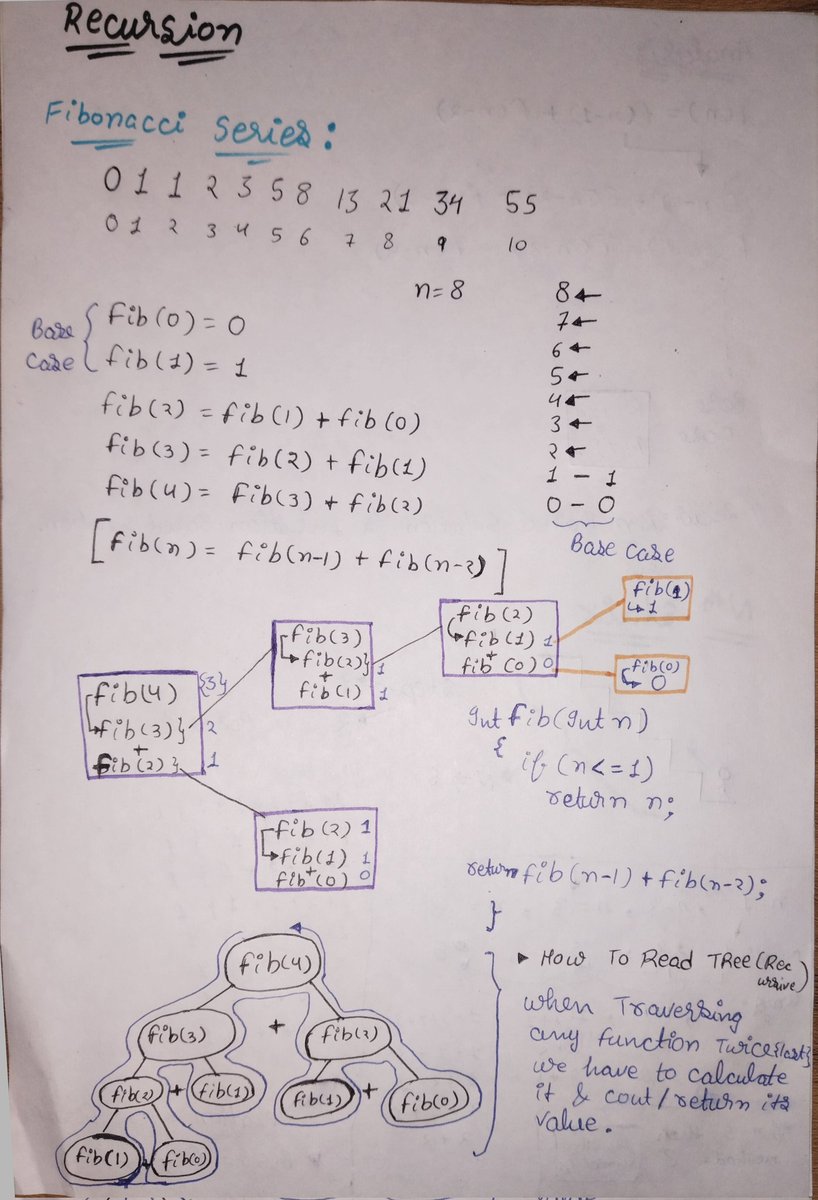 Recursion
Fibonacci Series:
0 1 1 2 3 5 8 13 21 34 55
0 1 2 3 4 5 6 7 8 9 10
n=8
8←
7←
6←
5←
4←
3←
2←
1 - 1
0 - 0
Base Case
Base Case
fib(0) = 0
fib(1) = 1
fib(2) = fib(1) + fib(0)
fib(3) = fib(2) + fib(1)
fib(4) = fib(3) + fib(2)
[fib(n) = fib(n-1) + fib(n-2)]
fib(4) {3}
fib(3)} 2
+
fib(2)} 1
fib(3)
fib(2)} 1
+
fib(1) 1
fib(2)
fib(1) 1
+
fib(0) 0
fib(1)
↳ 1
fib(0)
0
fib(2) 1
fib(1) 1
+
fib(0) 0
Int fib(Int n)
{
if (n<=1)
return n;
return fib(n-1) + fib(n-2);
}
fib(4)
fib(3) + fib(2)
fib(2) + fib(1) fib(1) + fib(0)
fib(1) + fib(0)
▸ How To Read TRee (Recursive)
when Traversing
any function Twice{last}
we have to calculate
it & cout/return its
value.